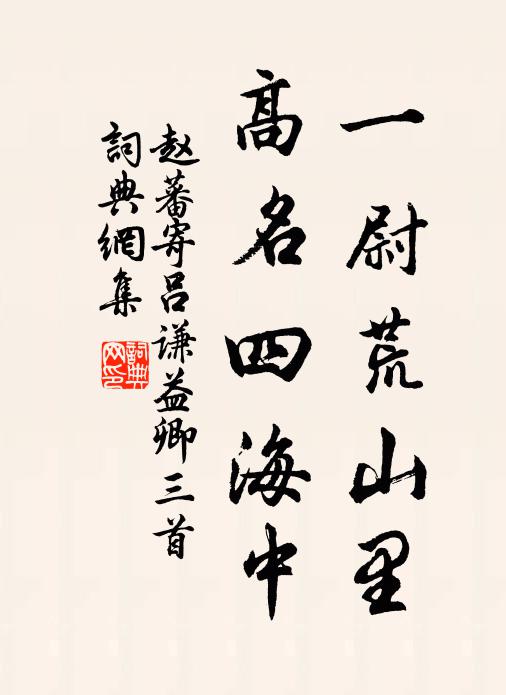 一尉荒山里
高名四海中
赵蕃寄吕谦益卿三首
詞典網集
詞典网印